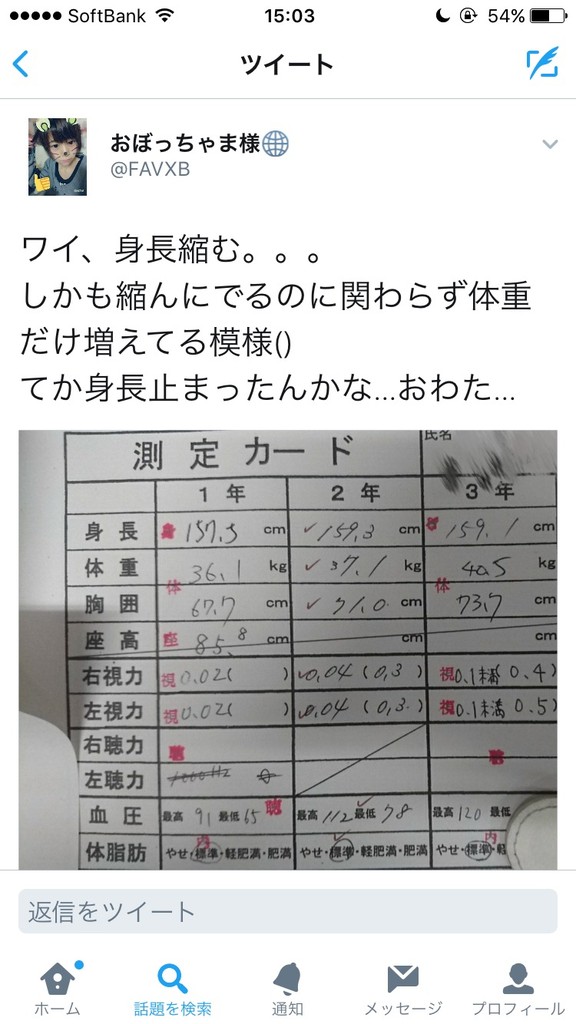 SoftBank 15:03 54%
ツイート
おぼっちゃま様
@FAVXB
ワイ、身長縮む。。。
しかも縮んにでるのに関わらず体重
だけ増えてる模様()
てか身長止まったんかな...おわた...
測定カード 氏名
1年 2年 3年
身長 157.5 cm 159.3 cm 159.1 cm
体重 36.1 kg 37.1 kg 40.5 kg
体 体
胸囲 67.7 cm 71.0 cm 73.7 cm
座高 座 85.8 cm cm cm
右視力 視 0.02( ) 0.04 (0,3 ) 視 0.1未満 0.4)
左視力 視 0.02( ) 0.04 (0,3. ) 視 0.1未満 0.5)
右聴力 聴 聴
左聴力 1000Hz
血圧 最高 91 最低 65 聴 最高 112 最低 78 最高 120 最低
内 内
体脂肪 やせ・標準・軽肥満・肥満 やせ・標準・軽肥満・肥満 やせ・標準・軽
返信をツイート
ホーム 話題を検索 通知 メッセージ プロフィール